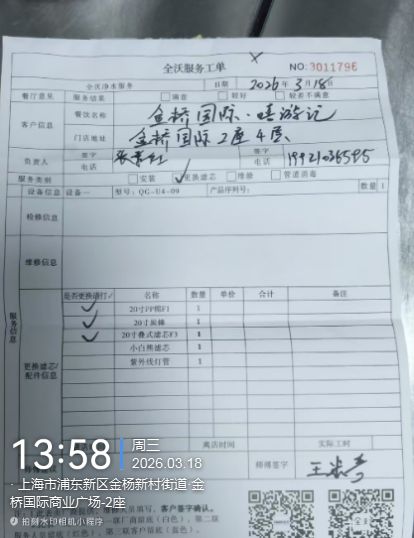 全沃服务工单
NO:3011796
全沃净水服务 日期 2026年3月18日
餐厅意见 服务结果 满意 较好 较差不满意
客户信息 餐饮名称 金桥国际·嘻游记
门店地址 金桥国际2座4层
负责人 签字 电话 签字 电话 19921036595
服务类别 安装 ✓更换滤芯 维修 管道消毒
设备信息 设备一 型号：QG-U4-09 产品序列号： 数量 1
检修信息
维修信息
服务信息
是否更换请打✓ 名称 数量 单价 合计 备注
✓ 20寸PP棉F1 1
✓ 20寸炭棒 1
✓ 20寸叠式滤芯F3 1
小白熊滤芯 1
紫外线灯管 1
更换滤芯/配件信息
离店时间 实际工时
师傅签字
13:58 周三
2026.03.18
·上海市浦东新区金杨新村街道·金
桥国际商业广场-2座
拍刻水印相机小程序
客户签字确认。